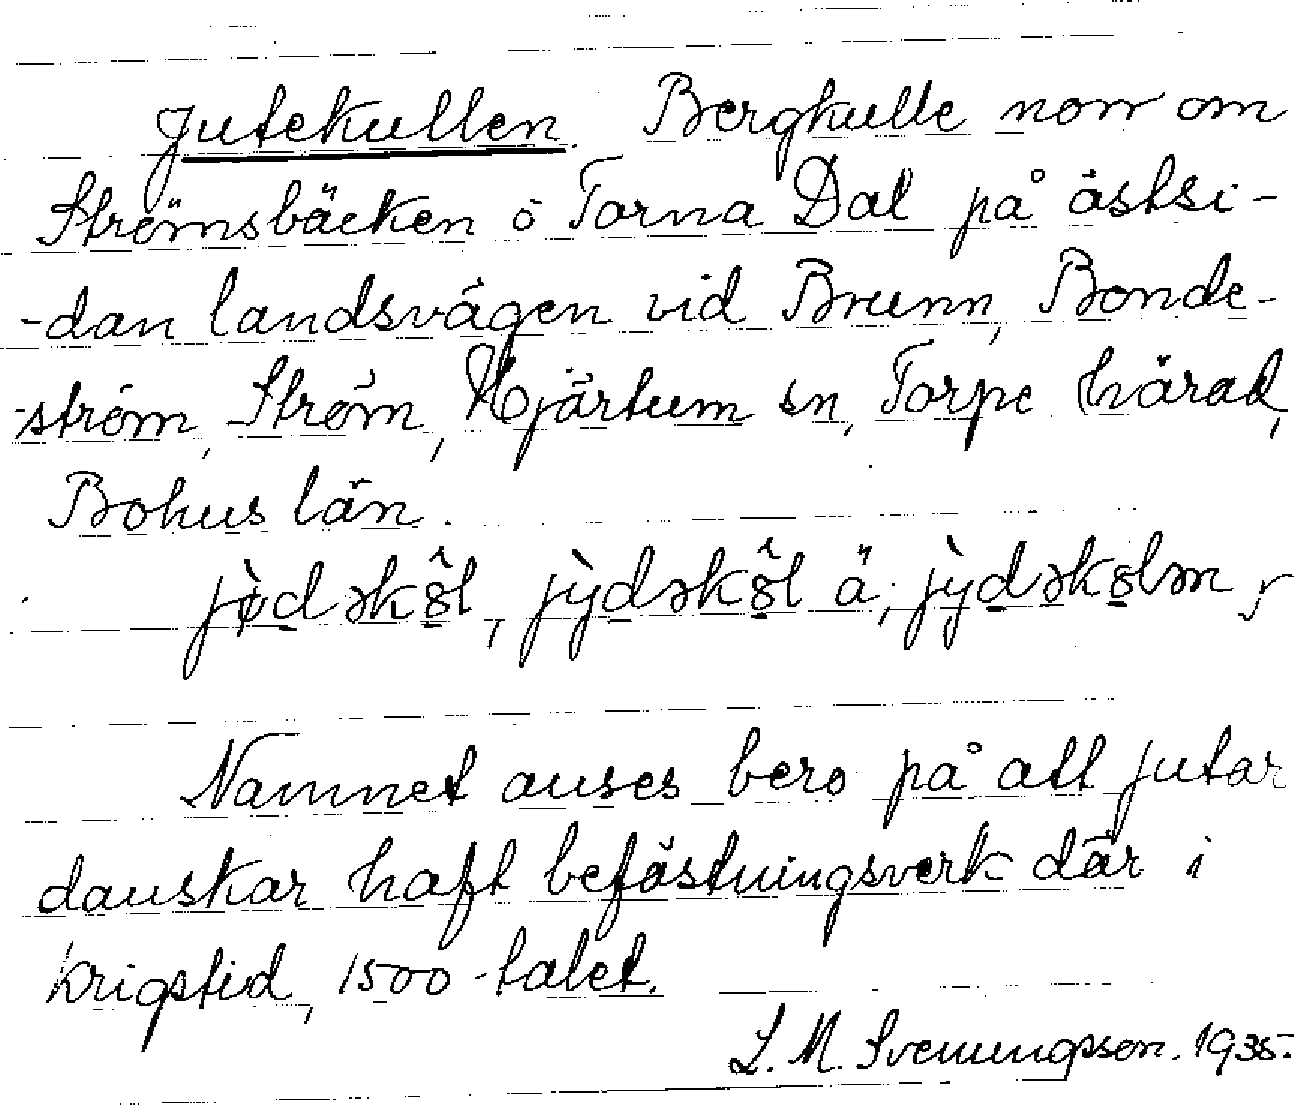 Jutekullen. Bergkulle norr om
Strömsbäcken ö Torna Dal på östsi-
-dan landsvägen vid Brunn, Bonde-
-ström, Ström, Hjärtum sn, Torpe härad,
Bohus län.
jø̀dəkŏ̂l, jỳdəkŏ̂l ä, jỳdəkolən,
Namnet anses bero på att jutar
danskar haft befästningsverk där i
krigstid, 1500-talet.
L. M. Svenungsson. 1935.